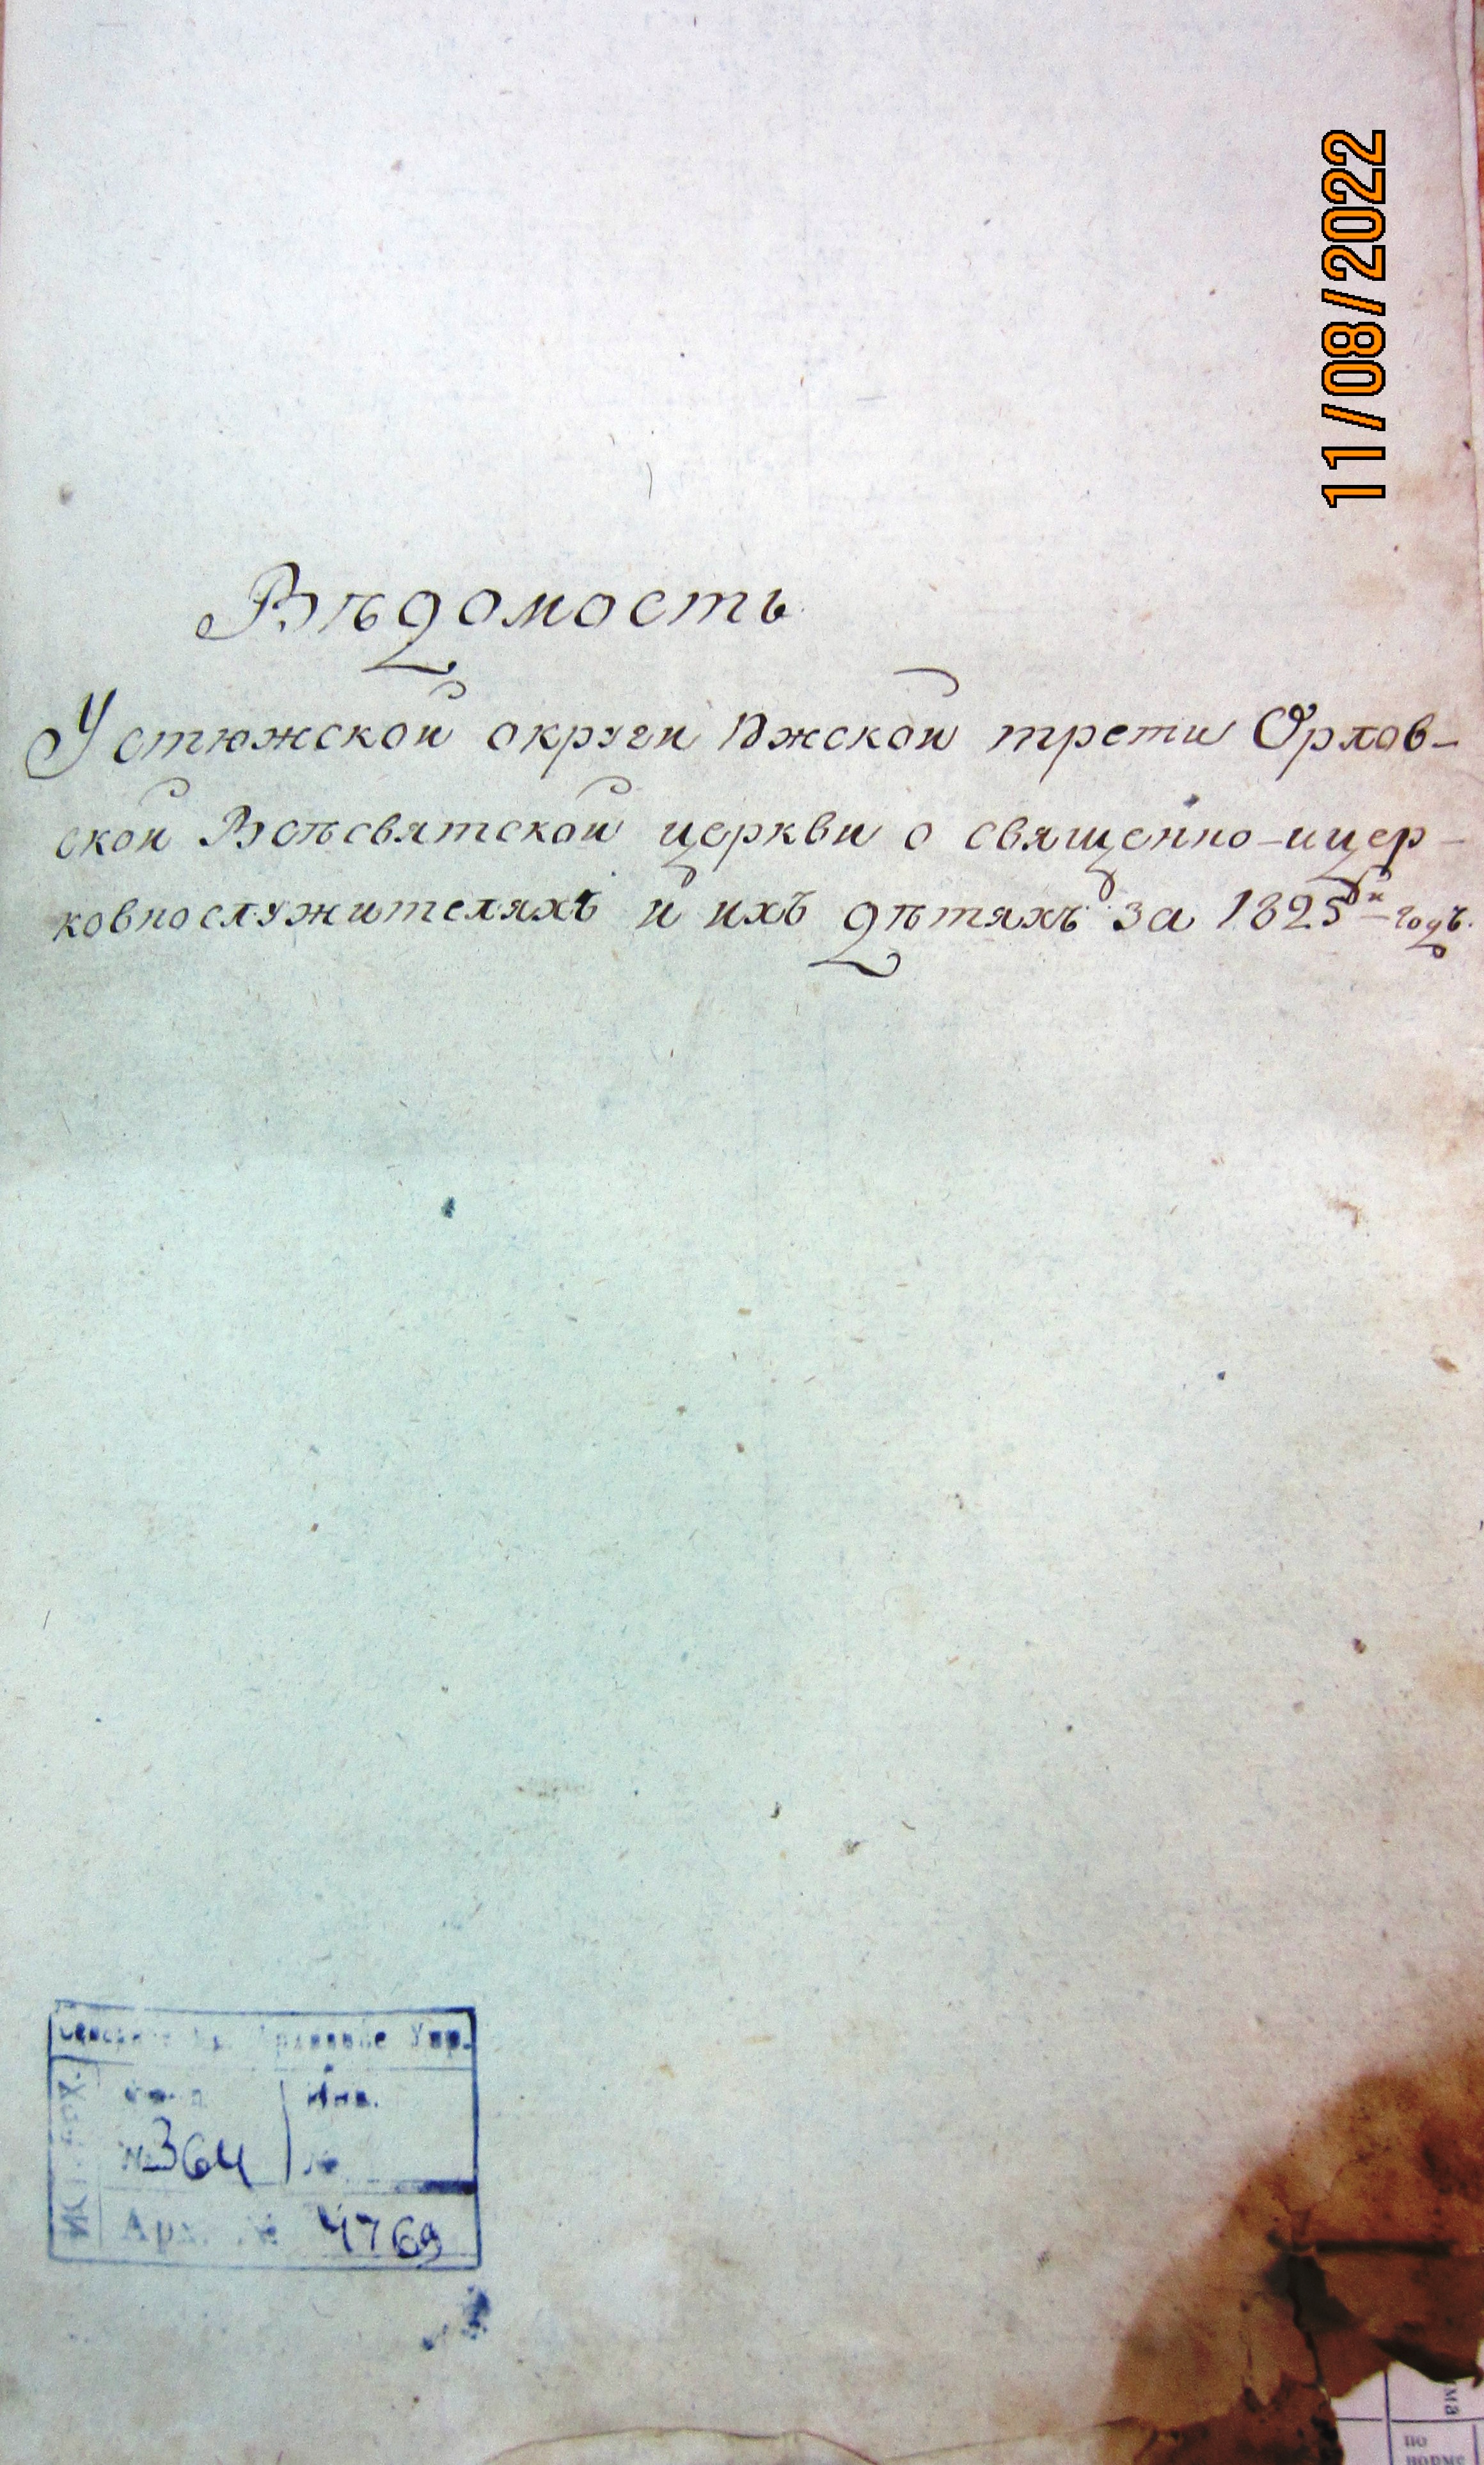 11/08/2022
Вѣдомость
Устюжской округи Южской трети Орлов-
ской Всѣсвятской церкви о священно-ицер-
ковнослужителяхъ и ихъ дѣтяхъ за 1825й годъ.
Упр.
№ 364
Арх. № 4769
по
норме